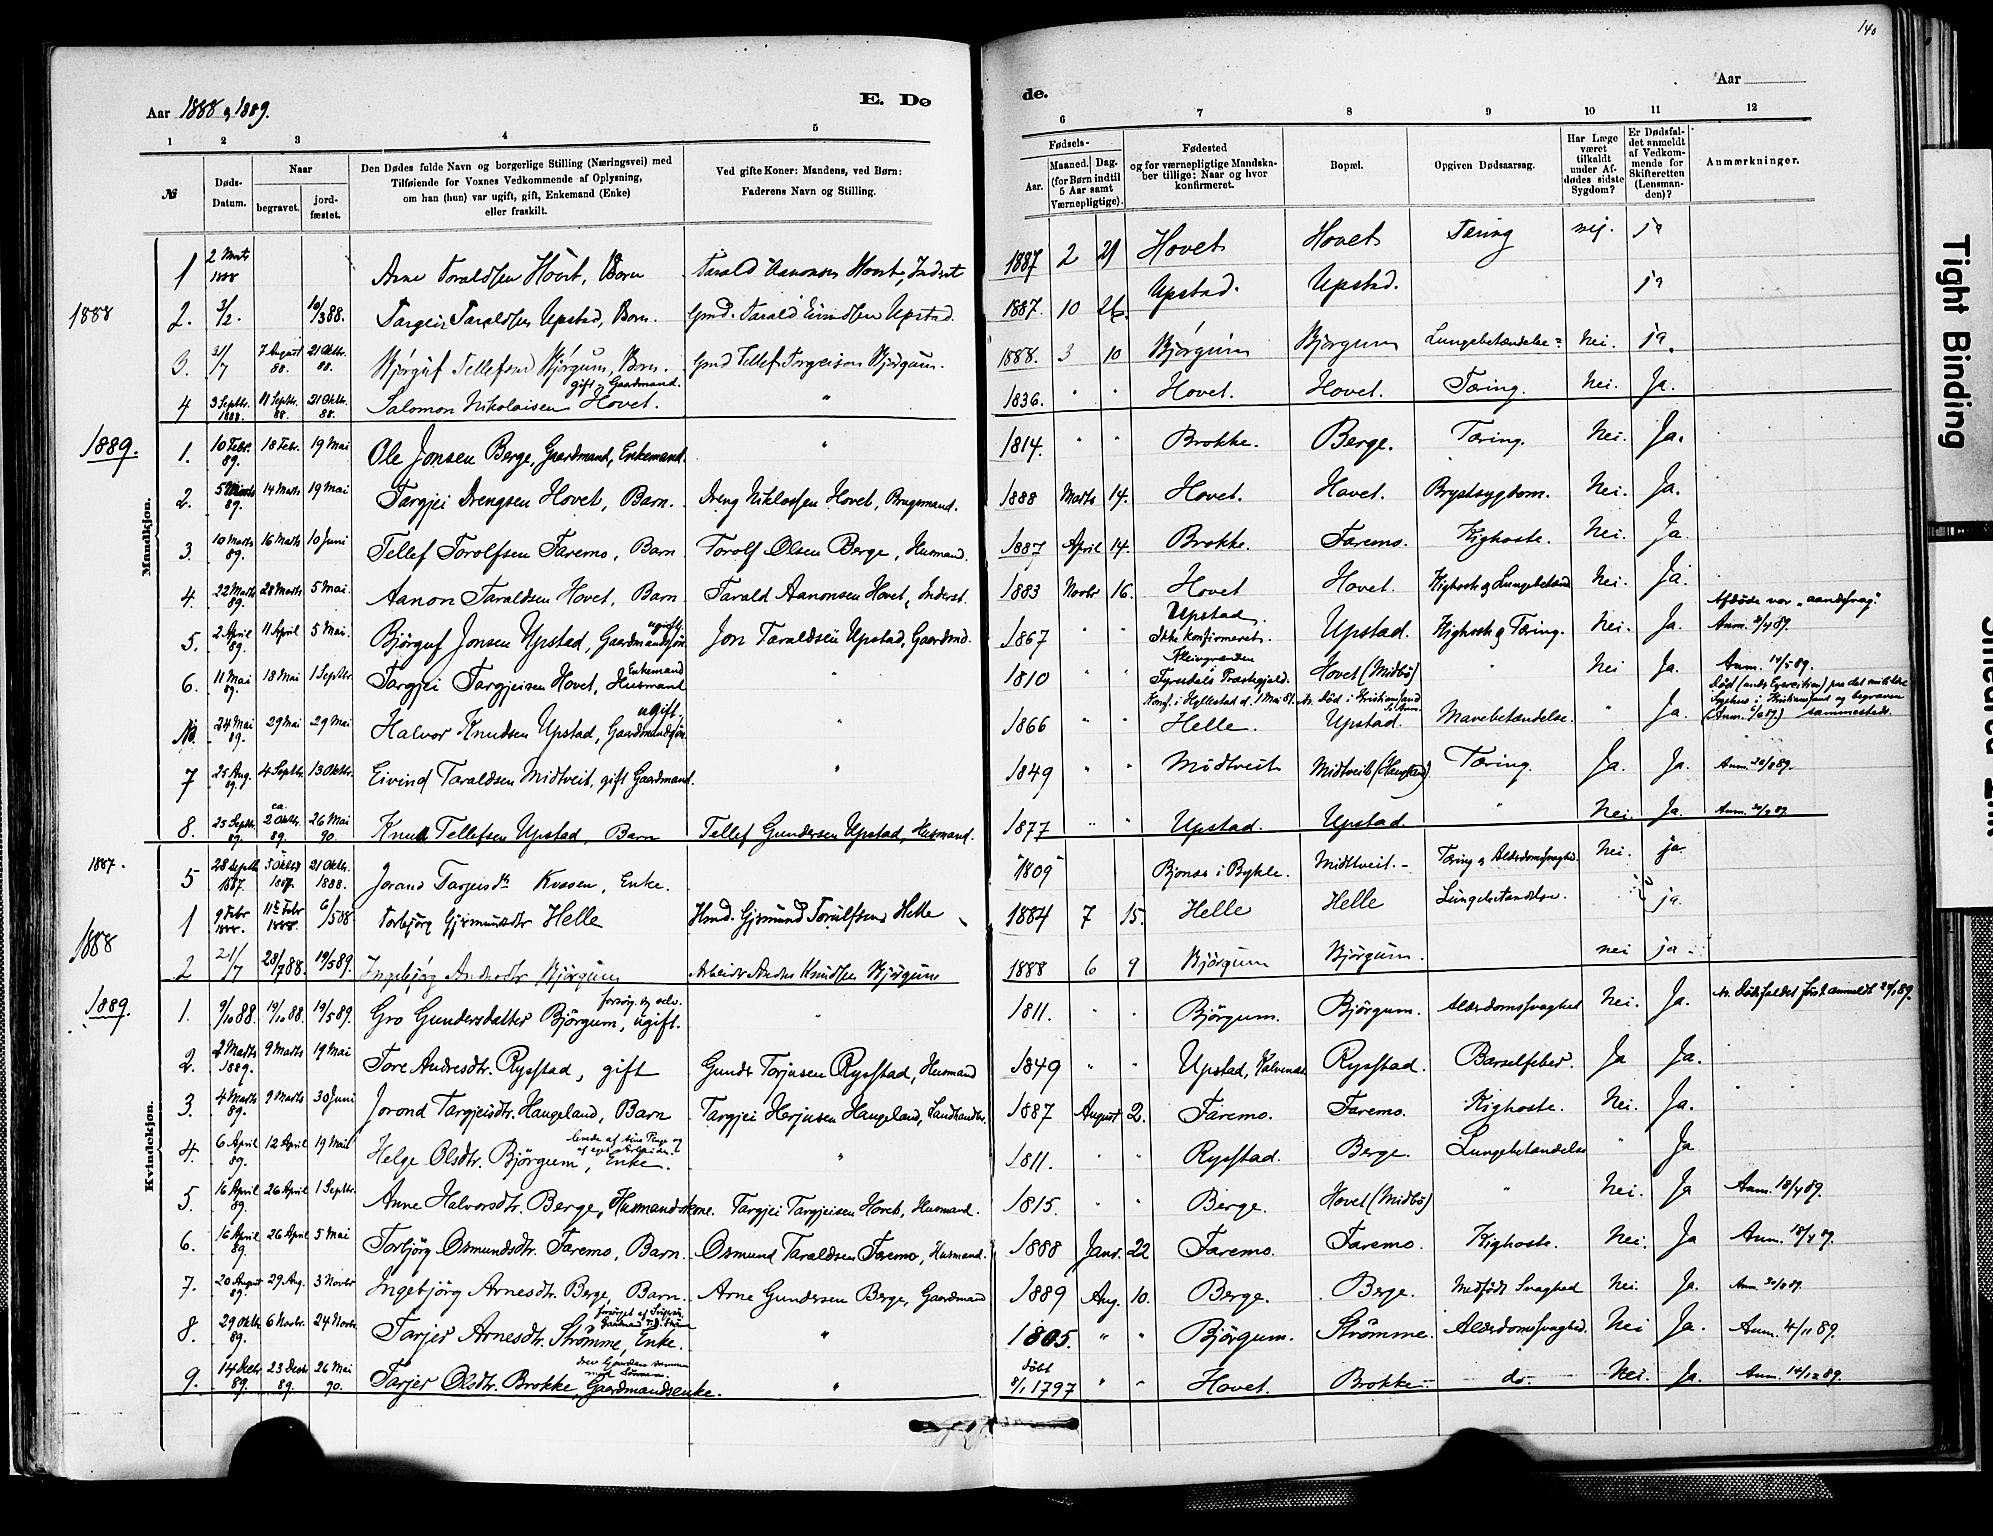 140
Aar 1888 og 1889.
E. Dø
de.
Aar
1 2 3 4 5 6 7 8 9 10 11 12
№
Døds-Datum.
Naar
begravet.
jordfæstet.
Den Dødes fulde Navn og borgerlige Stilling (Næringsvei) med
Tilføiende for Voxnes Vedkommende af Oplysning,
om han (hun) var ugift, gift, Enkemand (Enke)
eller fraskilt.
Ved gifte Koner: Mandens, ved Børn:
Faderens Navn og Stilling.
Fødsels-
Aar.
Maaned. Dag.
(for Børn indtil
5 Aar samt
Værnepligtige).
Fødested
og for værnepligtige Mandska-
ber tillige: Naar og hvor
konfirmeret.
Bopæl.
Opgiven Dødsaarsag.
Har Læge
været
tilkaldt
under Af-
dødes sidste
Sygdom?
Er Dødsfal-
det anmeldt
af Vedkom-
mende for
Skifteretten
(Lensman-
den)?
Anmærkninger.
Mandkjøn.
1888
1 2 Marts 1888 Arne Taraldsen Hovet, Barn Tarald Aanonsen Hovet, Inderst 1887 2 21 Hovet Hovet Tæring nej. ja
2. 3/2. 10/3 88. Targeir Taraldsen Upstad, Barn. Gmd. Tarald Eivindsen Upstad. 1887. 10 26. Upstad. Upstad. ja
3. 31/7 7 August 88. 21 Oktbr. 88. Bjørguf Tellefsen Bjørgum, Barn. Gmd Tellef Torgeirson Bjørgum. 1888. 3 10 Bjørgum Bjørgum Lungebetændelse Nei. ja.
4 3 Septbr. 1888. 11 Septbr. 88. 21 Oktbr. 88. Salomon Nikolaisen Hovet. gift, Gaardmand. " 1836. " " Hovet. Hovet. Tæring. Nei. Ja.
1889.
1. 10 Febr. 89. 18 Febr. 19 Mai Ole Jonsen Berge, Gaardmand, Enkemand. " 1814. " " Brokke. Berge. Tæring. Nei. Ja.
2. 5 Marts 89. 14 Marts 19 Mai Targjei Drengsen Hovet, Barn. Dreng Niklossen Hovet, Brugsmand. 1888 Marts 14. Hovet. Hovet. Brystsygdom. Nei. Ja.
3. 10 Marts 89. 16 Marts 10 Juni Tellef Torolfsen Faremo, Barn Torolf Olsen Berge, Husmand. 1887 April 14. Brokke. Faremo. Kighoste. Nei. Ja.
4. 22 Marts 89. 28 Marts 5 Mai. Aanon Taraldsen Hovet, Barn Tarald Aanonsen Hovet, Inderst. 1883 Novbr 16. Hovet Hovet. Kighoste og Lungebetænd. Nei. Ja.
5. 2 April 89. 11 April 5 Mai. Bjørguf Jonsen Upstad, Gaardmandssøn. ugift. Jon Taraldsen Upstad, Gaardmd. 1867 " " Upstad. Ikke konfirmeret. Upstad. Kighoste og Tæring. Nei. Ja. Afdøde var "aandssvag". Anm. 2/4 89.
6. 11 Mai 89. 18 Mai 1 Septbr. Targjei Targjeisen Hovet, Husmand Enkemand " 1810 " " Kleivgrænden Fyresdals Præstegjeld. Hovet (Midbø) " Nei Ja. Anm. 14/5 89.
24 Mai 89. 29 Mai 29 Mai Halvor Knudsen Upstad, Gaardmandssøn. ugift " 1866 " " Konf. i Hyllestad d. 1 Mai 81. Helle. Nr. Død i Kristianssand Upstad. Mavebetændelse. " Ja. Død (under Exercitien) paa det militære Sygehus i Kristianssand og begraven sammesteds. (Anm. 5/6 89.)
7 25 Aug. 89. 4 Septbr. 13 Oktbr. Eivind Taraldsen Midtveit, gift Gaardmand. " 1849 " " Midtveit Midtveit Tæring. Ja. Ja. Anm. 28/8 89.
8. 25 Septbr. 89. ca. 2 Oktbr. 89. 26 Mai 90. Knud Tellefsen Upstad, Barn Tellef Gundersen Upstad, Husmand. 1877 " " Upstad. Upstad. " Nei. Ja. Anm. 30/9 89.
Kvindekjøn.
1887.
5 28 Septb 1887. 3 Oktbr 1887. 21 Oktbr. 1888. Jorand Targeisdtr Kvasen, Enke. "1809" Bjones i Bykle. Midtveit. Tæring og Alderdomssvaghed. Nei. ja.
1888
1 9 Febr 1888. 11te Febr 1888. 6/5 88 Torbjørg Gjermundsdtr Helle Hmd. Gjermund Torulfsen Helle 1884 7 15. Helle Helle Lungebetændelse. ja.
2 21/7 28/7 88. 19/5 89. Ingebjørg Andersdtr Bjørgum Arbeider Anders Knudsen Bjørgum 1888 6 9 Bjørgum Bjørgum. nei ja.
1889.
1. 9/10 88. 19/10 88. 19/5 89. Gro Gundersdatter Bjørgum, ugift. forsørg. sig selv. " 1811. " " Bjørgum. Bjørgum. Alderdomssvaghed Nei. Ja. Nr. Dødsfaldet først anmeldt 24/1 89.
2. 2 Marts 1889. 9 Marts 19 Mai Tore Andresdtr. Rysstad, gift Gunder Torjusen Rysstad, Husmand 1849 " " Upstad, Rysstad. Barselfeber. Ja Ja.
3. 4 Marts 89. 9 Marts 30 Juni Jorond Targjeisdtr. Haugeland, Barn Targjei Herjusen Haugeland, Landhandler. 1887 August 2. Faremo. Faremo. Kighoste. Nei. Ja.
4. 6 April 89. 12 April 19 Mai Helge Olsdtr. Bjørgum, Enke. levede af sine Penge og af eget Arbeide. " 1811. " " Rysstad. Berge. Lungebetændelse " Ja
5 16 April 89. 26 April 1 Septbr. Anne Halvorsdtr. Berge, Husmandskone. Targjei Targjeisen Hovet, Husmand. 1815. " " Berge. Hovet (Midbø) " Nei. Ja Anm. 18/4 89.
6. 16 April 89. 26 April 5 Mai Torbjørg Osmundsdtr. Faremo, Barn. Osmund Taraldsen Faremo, Husmand. 1888 Janr. 22 Faremo. Faremo. Kighoste. Nei. Ja Anm. 18/4 89.
7. 20 August 89. 29 Aug. 3 Novbr Ingebjørg Arnesdtr. Berge, Barn. Arne Gundersen Berge, Gaardmand 1889 Aug. 10. Berge. Berge. Medfødt Svaghed Nei. Ja. Anm. 30/8 89.
8. 29 Oktbr. 89. 6 Novbr. 24 Novbr. Tarjer Arnesdtr. Strømme, Enke. " 1805. " " Bjørgum. Strømme. Alderdomssvaghed. Nei Ja. Anm. 4/11 89.
9. 14 Decbr 89. 23 Decbr 89. 26 Mai 90. Tarjer Olsdtr. Brokke, Gaardmandsenke. drev Gaarden sammen med Sønnen. " døbt 8/1 1797 " " Hovet. Brokke do. Nei. Ja. Anm. 14/12 89.
Tight Binding